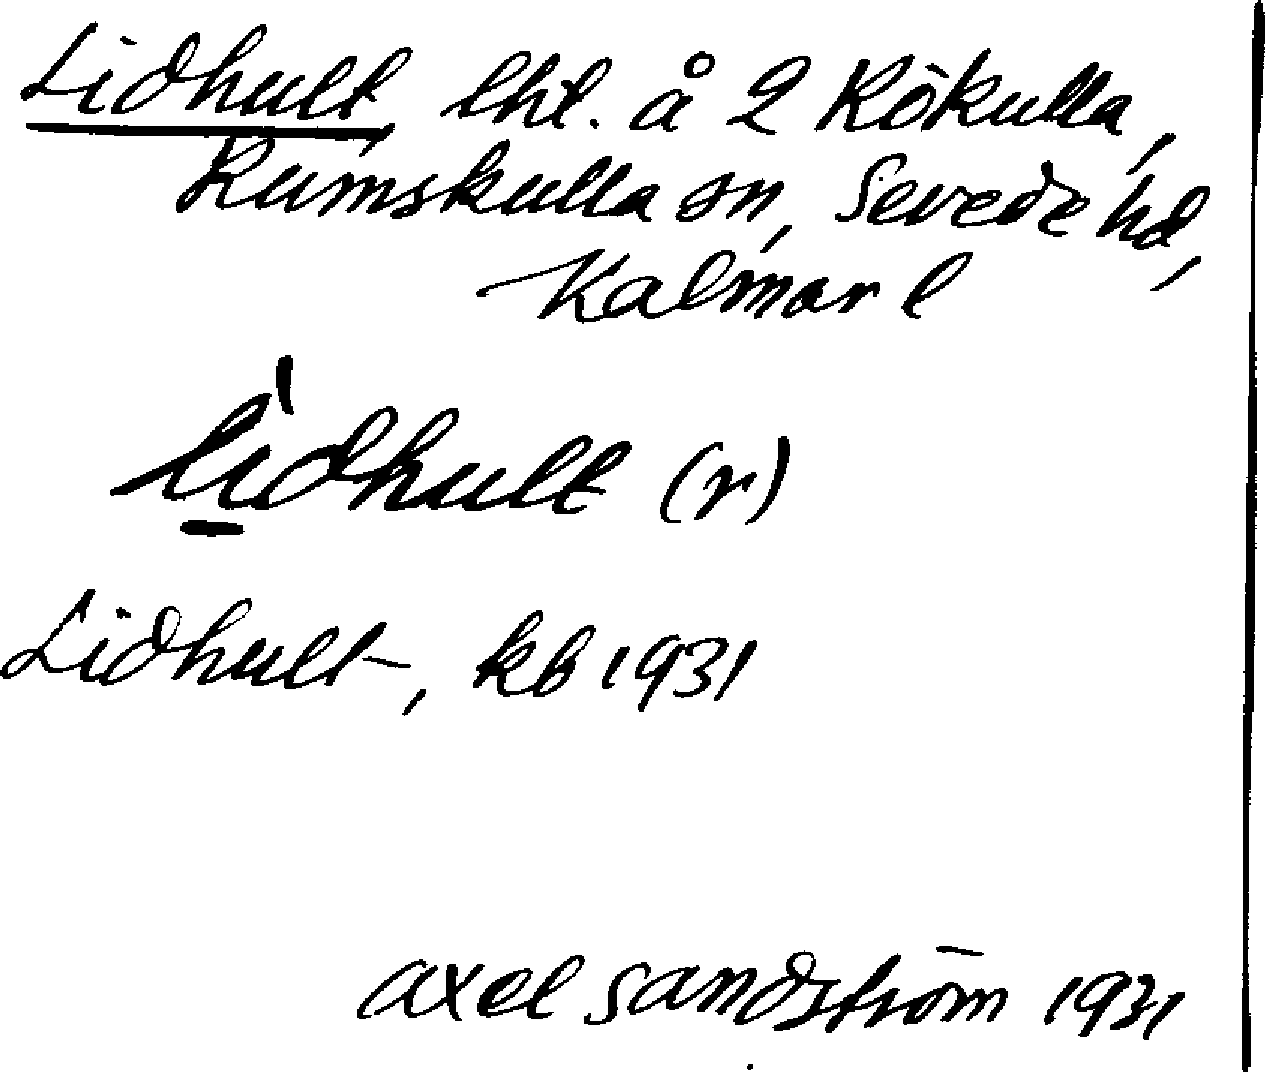 Lidhult, lht. å 2 Kökulla,
Rumskulla sn, Sevede hd,
Kalmar l
lìdhult (r)
Lidhult, kb 1931
Axel Sandström 1931